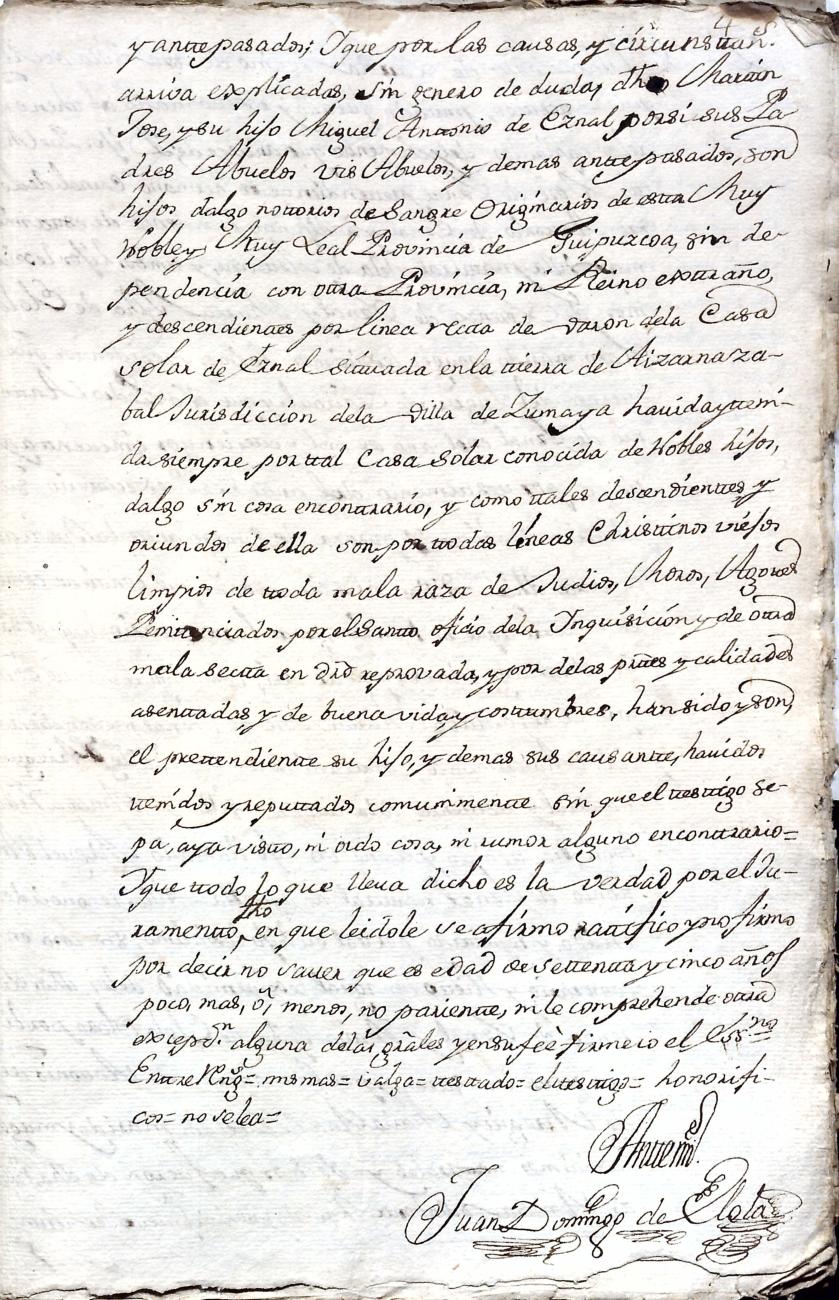 4
y anttepasados; Yque por las causas, y circunsttan.s
arriva explicadas, sin genero de duda, dho Martin
Jose, y su hijo Miguel Antonio de Eznal por si sus Pa-
dres Abuelos vis Abuelos, y demas anttepasados, son
hijos dalgo nottorios de Sangre Originarios de estta Muy
Noble, y Muy Leal Provincia de Guipuzcoa, sin de-
pendencia con ottra Provincia, ni Reino exttraño,
y descendienttes por linea rectta de varon dela Casa
solar de Eznal situada en la tierra de Aizarnaza-
bal Jurisdiccion dela Villa de Zumaya havida y tteni-
da siempre por ttal Casa Solar conocida de Nobles hijos,
dalgo sin cosa enconttrario, y como ttales descendienttes y
oriundos de ella son por ttodas lineas Christtinos viejos
limpios de ttoda mala raza de Judios, Moros, Agottes
Penittenciados por el Santto oficio dela Inquisición y de ottra
mala sectta en dro reprovada, y por delas prttes y calidades
asenttadas, y de buena vida, y costtumbres, han sido y son,
el prettendiente su hijo, y demas sus causantte, havidos
ttenidos y reputtados comunmentte sin que el ttesttigo se-
pa, aya vistto, ni oido cosa, ni rumor alguno enconttrario=
Yque ttodo lo que lleva dicho es la verdad por el Ju-
ramentto fho en que leidole se afirmo rattifico y no firmo
por decir no saver que es edad de settentta y cinco años
poco, mas, ó, menos, no parientte, ni le comprehende ottra
excepc.n alguna delas grales y en su feè firme io el Ess.no
Enttre Reng.s= ms mas= valga= ttesttado= el ttesttigo= honorifi-
cos= no se lea=
Antte mi
Juan Domingo de Elola